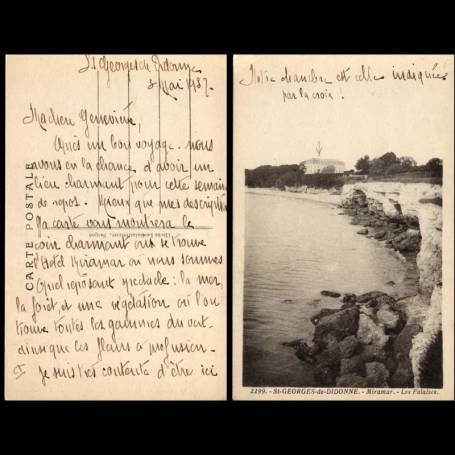 St Georges de Didonne
3 Mai 1937.
Ma chère Geneviève,
Après un bon voyage nous
avons eu la chance d'avoir un
lieu charmant pour cette semaine
de repos. Mieux que mes descriptions
la carte vous montrera le
coin charmant où se trouve
l'Hôtel Miramar où nous sommes
Quel reposant spectacle : la mer,
la forêt, et une végétation où l'on
trouve toutes les gammes du vert
ainsi que les fleurs à profusion.
Je suis très contente d'être ici
CARTE POSTALE
Notre chambre est celle indiquée
par la croix !
2299. - St-GEORGES-de-DIDONNE. - Miramar. - Les Falaises.